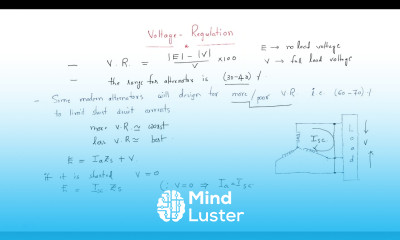 Voltage - Regulation
- V.R. = |E| - |V| / V × 100
E → no load voltage
V → full load voltage
- the range for alternator is (30-40) %
- Some modern alternators will design for more/poor V.R i.e (60-70) %
to limit short circuit currents
more V.R ≃ worst
less V.R ≃ best
E = IaZs + V
if it is shorted V = 0
E = Isc Zs (∵ V=0 ⇒ Ia = Isc
Isc
Load
V
Mind
Luster